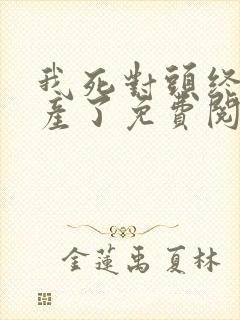 我死對頭終
產了免費閱
金蓮禹夏林